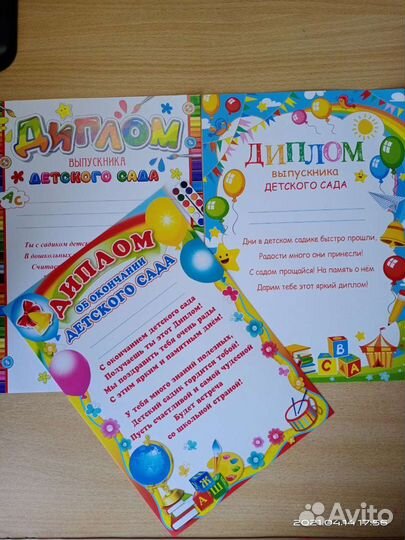 Диплом
выпускника
детского сада
Ас
Ты с садиком детс
В дошкольных
Счита
Диплом
выпускника
детского сада
Дни в детском садике быстро прошли,
Радости много они принесли!
С садом прощайся! На память о нём
Дарим тебе этот яркий диплом!
Б В
А
Диплом
об окончании
детского сада
С окончанием детского сада
Получаешь ты этот Диплом!
Мы поздравить тебя очень рады
С этим ярким и памятным днём!
У тебя много знаний полезных,
Детский садик гордится тобой!
Пусть счастливой и самой чудесной
Будет встреча
со школьной страной!
Ж
А Ш
2021.04.14 17:56
Avito